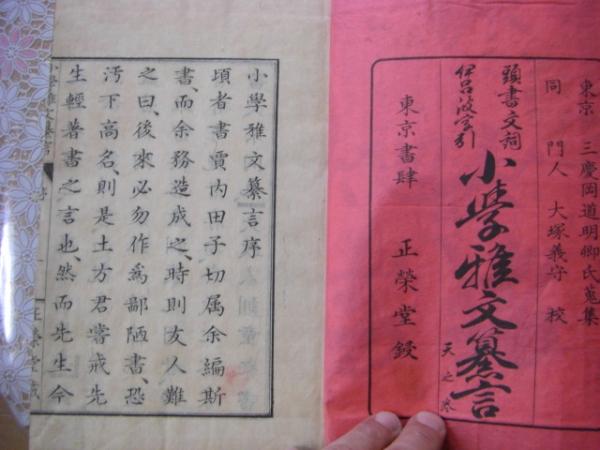 東京 三慶岡道明卿氏蒐集
同 門人 大塚義守 校
頭書文詞
伊呂波字引
小學雅文纂言
天之巻
東京書肆 正榮堂鋟
小學雅文纂言序
頃者書賈內田子切属余編斯
書、而余務造成之、時則友人難
之曰、後來必勿作爲鄙陋書、恐
汚下高名、則是土方君嘗戒先
生輕著書之言也、然而先生今
小學雅文纂言 序 正榮堂藏